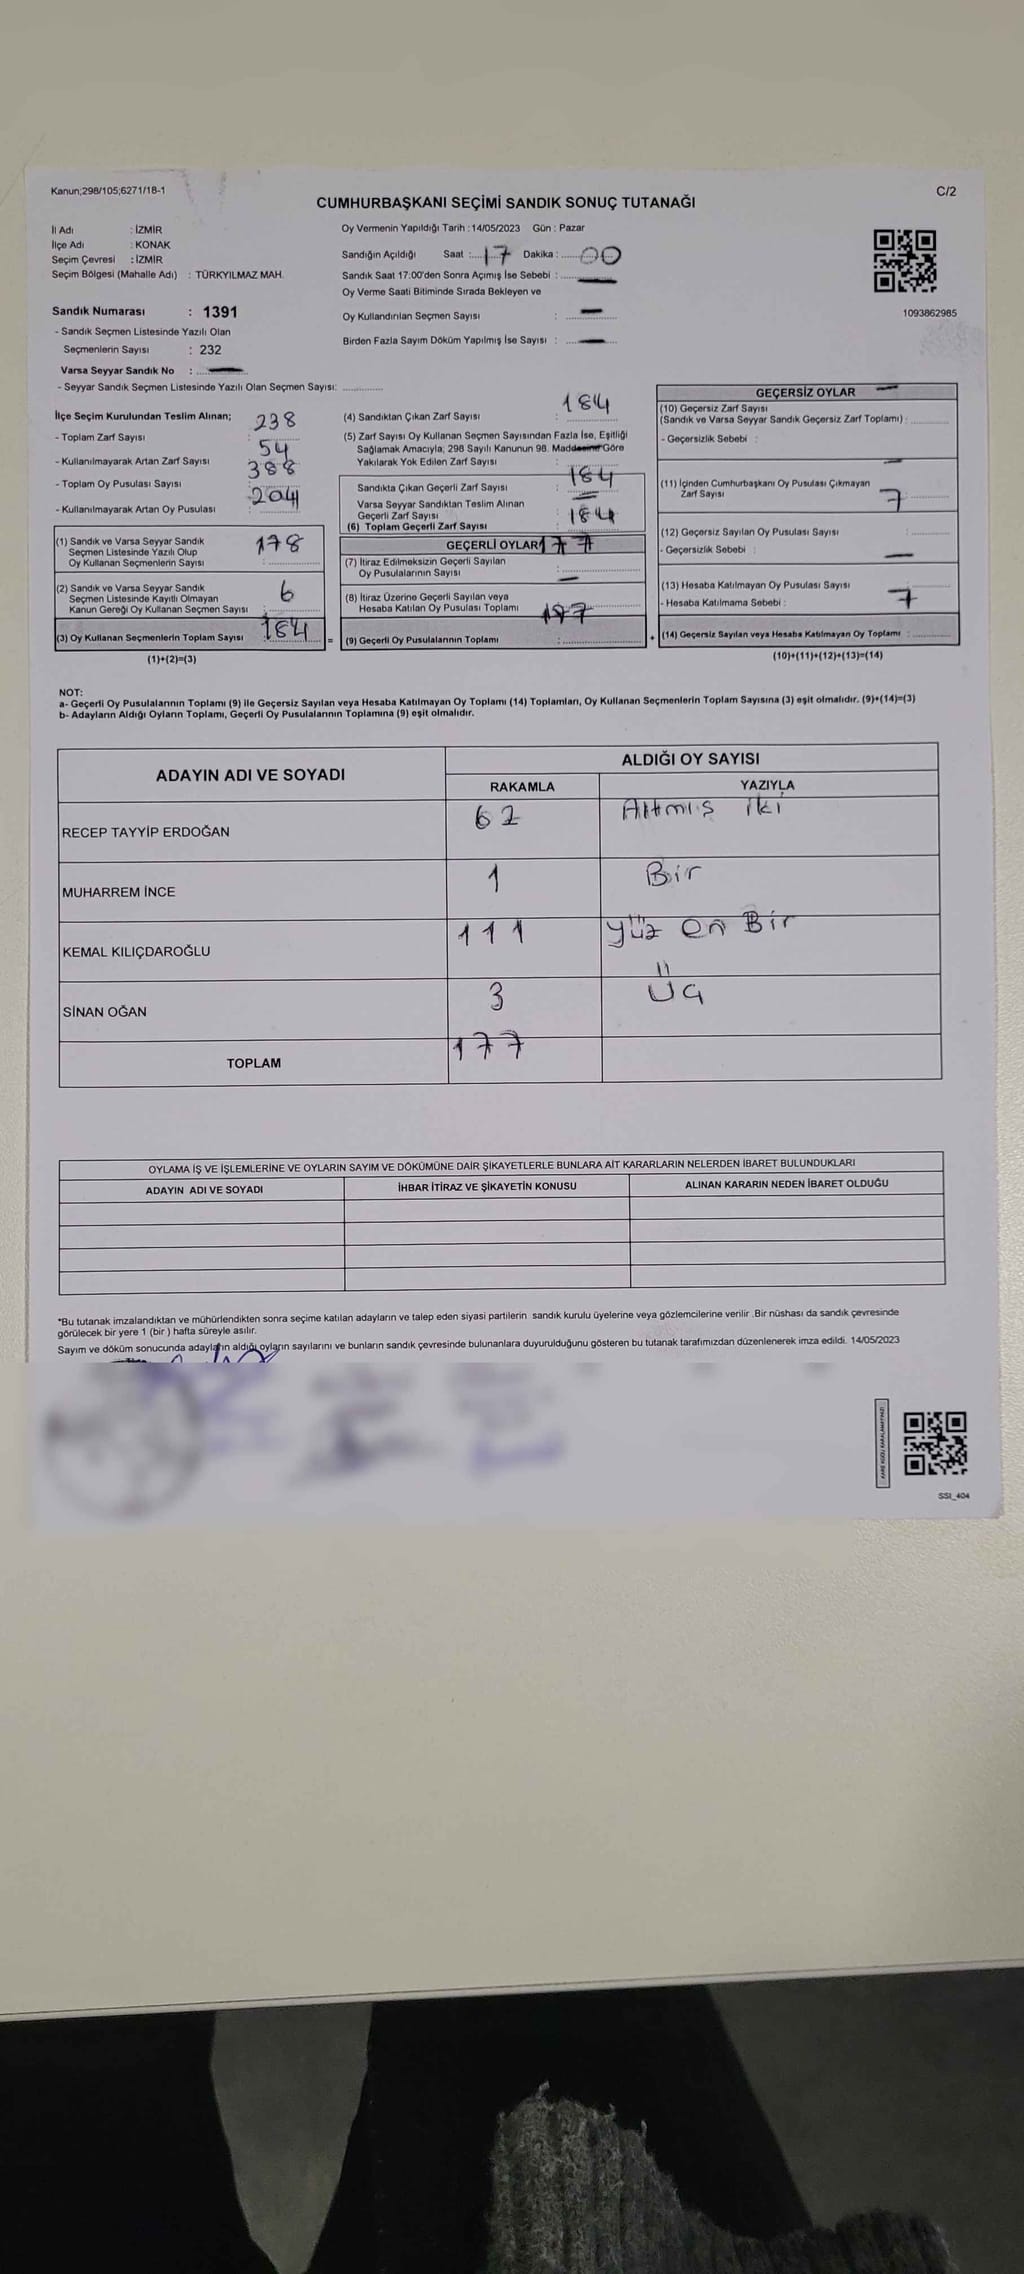 Kanun;298/105;6271/18-1
C/2
CUMHURBAŞKANI SEÇİMİ SANDIK SONUÇ TUTANAĞI
İl Adı : İZMİR
İlçe Adı : KONAK
Seçim Çevresi : İZMİR
Seçim Bölgesi (Mahalle Adı) : TÜRKYILMAZ MAH.
Oy Vermenin Yapıldığı Tarih : 14/05/2023 Gün : Pazar
Sandığın Açıldığı Saat :....17 Dakika :.......00
Sandık Saat 17:00'den Sonra Açımış İse Sebebi : —
Oy Verme Saati Bitiminde Sırada Bekleyen ve
Oy Kullandırılan Seçmen Sayısı : —
Birden Fazla Sayım Döküm Yapılmış İse Sayısı : —
1093862985
Sandık Numarası : 1391
- Sandık Seçmen Listesinde Yazılı Olan
Seçmenlerin Sayısı : 232
Varsa Seyyar Sandık No : —
- Seyyar Sandık Seçmen Listesinde Yazılı Olan Seçmen Sayısı: .............
İlçe Seçim Kurulundan Teslim Alınan;
- Toplam Zarf Sayısı : 238
- Kullanılmayarak Artan Zarf Sayısı : 54
- Toplam Oy Pusulası Sayısı : 388
- Kullanılmayarak Artan Oy Pusulası : 204
(1) Sandık ve Varsa Seyyar Sandık
Seçmen Listesinde Yazılı Olup
Oy Kullanan Seçmenlerin Sayısı : 178
(2) Sandık ve Varsa Seyyar Sandık
Seçmen Listesinde Kayıtlı Olmayan
Kanun Gereği Oy Kullanan Seçmen Sayısı : 6
(3) Oy Kullanan Seçmenlerin Toplam Sayısı : 184 =
(1)+(2)=(3)
(4) Sandıktan Çıkan Zarf Sayısı : 184
(5) Zarf Sayısı Oy Kullanan Seçmen Sayısından Fazla İse, Eşitliği
Sağlamak Amacıyla; 298 Sayılı Kanunun 98. Maddesine Göre
Yakılarak Yok Edilen Zarf Sayısı : —
Sandıkta Çıkan Geçerli Zarf Sayısı : 184
Varsa Seyyar Sandıktan Teslim Alınan
Geçerli Zarf Sayısı : —
(6) Toplam Geçerli Zarf Sayısı : 184
GEÇERLİ OYLAR
(7) İtiraz Edilmeksizin Geçerli Sayılan
Oy Pusulalarının Sayısı : 177
(8) İtiraz Üzerine Geçerli Sayılan veya
Hesaba Katılan Oy Pusulası Toplamı : —
(9) Geçerli Oy Pusulalarının Toplamı : 177 +
GEÇERSİZ OYLAR
(10) Geçersiz Zarf Sayısı
(Sandık ve Varsa Seyyar Sandık Geçersiz Zarf Toplamı) : —
- Geçersizlik Sebebi :
(11) İçinden Cumhurbaşkanı Oy Pusulası Çıkmayan
Zarf Sayısı : —
(12) Geçersiz Sayılan Oy Pusulası Sayısı : 7
- Geçersizlik Sebebi :
(13) Hesaba Katılmayan Oy Pusulası Sayısı : —
- Hesaba Katılmama Sebebi :
(14) Geçersiz Sayılan veya Hesaba Katılmayan Oy Toplamı : 7
(10)+(11)+(12)+(13)=(14)
NOT:
a- Geçerli Oy Pusulalarının Toplamı (9) ile Geçersiz Sayılan veya Hesaba Katılmayan Oy Toplamı (14) Toplamları, Oy Kullanan Seçmenlerin Toplam Sayısına (3) eşit olmalıdır. (9)+(14)=(3)
b- Adayların Aldığı Oyların Toplamı, Geçerli Oy Pusulalarının Toplamına (9) eşit olmalıdır.
ADAYIN ADI VE SOYADI ALDIĞI OY SAYISI
RAKAMLA YAZIYLA
RECEP TAYYİP ERDOĞAN 62 Altmış iki
MUHARREM İNCE 1 Bir
KEMAL KILIÇDAROĞLU 111 Yüz on Bir
SİNAN OĞAN 3 Üç
TOPLAM 177
OYLAMA İŞ VE İŞLEMLERİNE VE OYLARIN SAYIM VE DÖKÜMÜNE DAİR ŞİKAYETLERLE BUNLARA AİT KARARLARIN NELERDEN İBARET BULUNDUKLARI
ADAYIN ADI VE SOYADI İHBAR İTİRAZ VE ŞİKAYETİN KONUSU ALINAN KARARIN NEDEN İBARET OLDUĞU
*Bu tutanak imzalandıktan ve mühürlendikten sonra seçime katılan adayların ve talep eden siyasi partilerin sandık kurulu üyelerine veya gözlemcilerine verilir .Bir nüshası da sandık çevresinde
görülecek bir yere 1 (bir ) hafta süreyle asılır.
Sayım ve döküm sonucunda adayların aldığı oyların sayılarını ve bunların sandık çevresinde bulunanlara duyurulduğunu gösteren bu tutanak tarafımızdan düzenlenerek imza edildi. 14/05/2023
KARE KODU KARALAMAYINIZ!
SSI_404